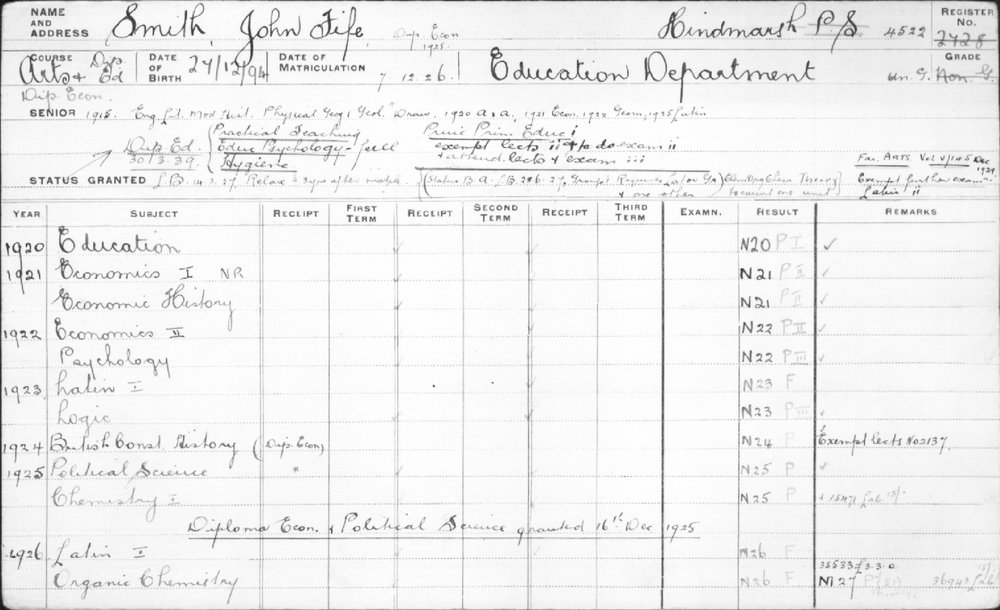 NAME AND ADDRESS Smith, John Fife, Dip. Econ 1925. Hindmarsh P S 4522 REGISTER No. 2728
COURSE Arts & Dip Ed DATE OF BIRTH 27/12/94 DATE OF MATRICULATION 7.12.26. Education Department GRADE Un. G. Hon. G.
Dip. Econ.
SENIOR 1915. Eng. Lat. Mod Hist. Physical Geog & Geol. Draw. 1920 1921 Econ. 1922 Geom, 1925 Latin
Practical Teaching Princ Prim. Educ i
Dip. Ed. Educ Psychology - full exempt lects ii & to do exam ii
30/3.39. Hygiene & attend. lects & exam iii
Fac. ARTS. Vol V/145 Dec 1927.
STATUS GRANTED 14.3.27. Relax 3 yrs after matric. (Status B.A. Group i & one other to count one unit) Exempt further exam. Latin ii
YEAR SUBJECT RECEIPT FIRST TERM RECEIPT SECOND TERM RECEIPT THIRD TERM EXAMN. RESULT REMARKS
1920 Education N20 P I ✓
1921 Economics I NR N21 P II ✓
Economic History N21 P II ✓
1922 Economics II N22 P II ✓
Psychology N22 P III ✓
1923 Latin I N23 F
Logic N23 P III ✓
1924 British Const History (Dip. Econ) N24 P Exempt lects No2137.
1925 Political Science " N25 P ✓
Chemistry I N25 P ✓ 15471 Lab. 15/-
Diploma Econ. & Political Science granted 16th Dec 1925
1926 Latin I N26 F
35533 £3.3.0
Organic Chemistry N26 F N27 P 36943 Lab 15/-